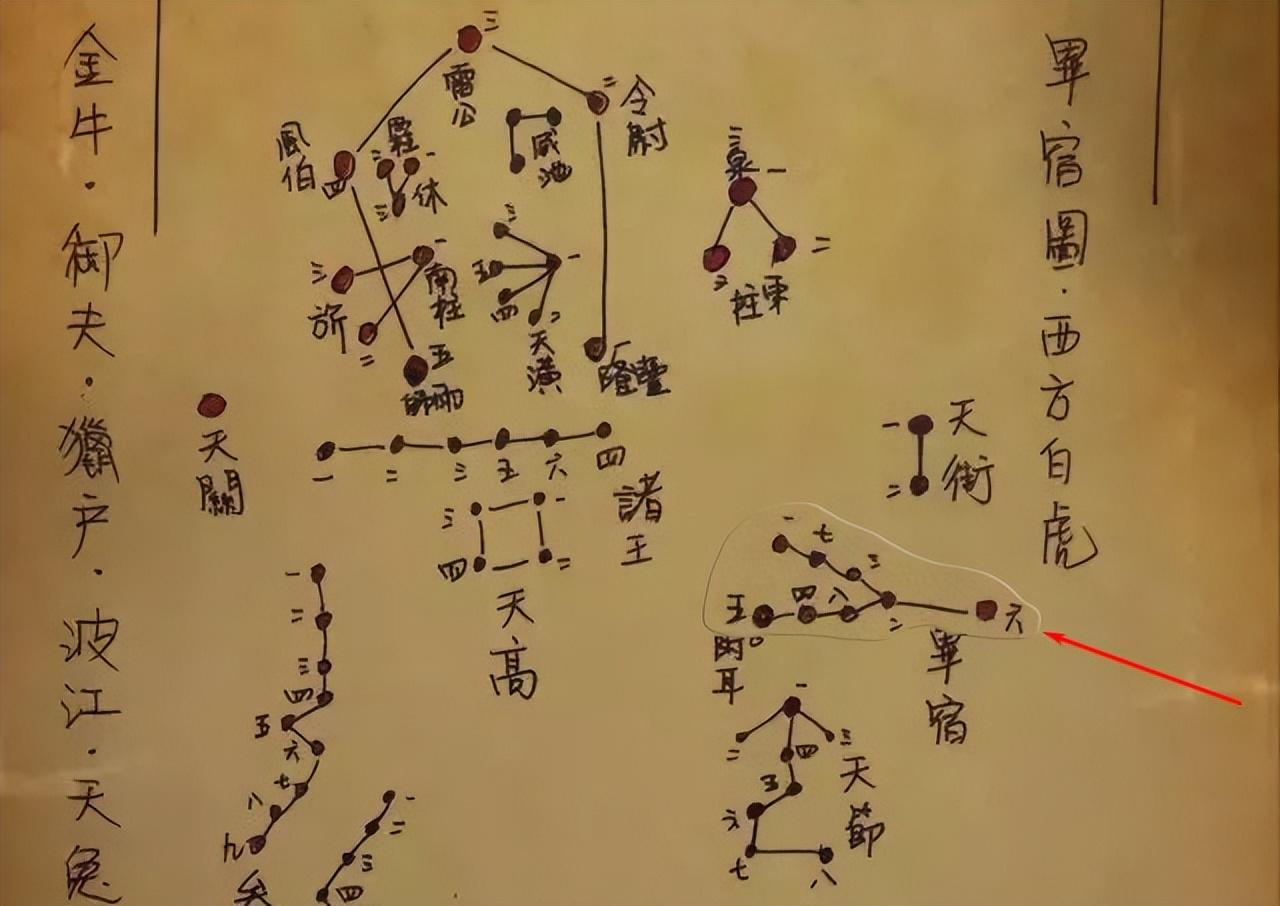 畢宿圖·西方白虎
三
雷公
二
令尉
風伯
四
二
一
三
休
咸池
三泉
一
二
三
柱東
三
一
南柱
二
三
五
四
二
一
天潢
一
五
師雨
天關
一
二
三
五
六
四
諸王
三
一
四
二
天高
一
天街
二
一
七
三
五
四
八
二
六
畢宿
附耳
一
二
三
四
五
六
七
八
天節
一
二
三
四
五
六
七
八
九
一
二
三
四
金牛·御夫·獵户·波江·天兔